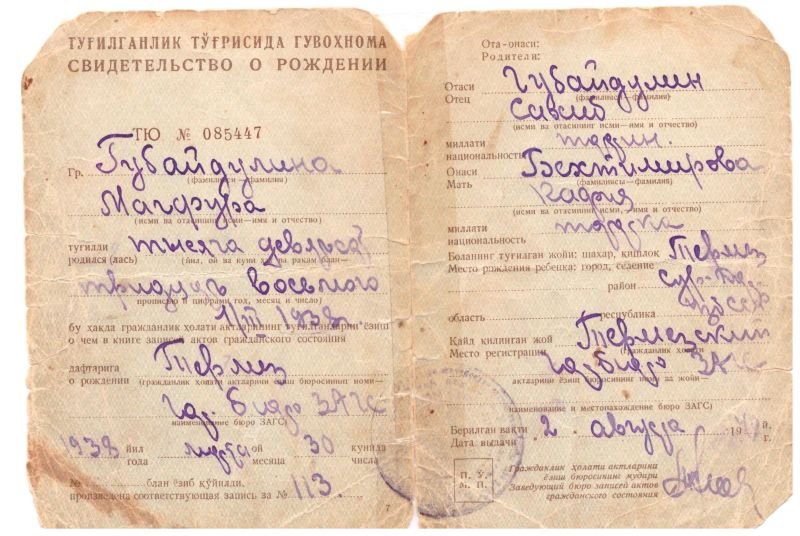 ТУҒИЛГАНЛИК ТЎҒРИСИДА ГУВОҲНОМА
СВИДЕТЕЛЬСТВО О РОЖДЕНИИ
ТЮ № 085447
Гр. Губайдулина
(фамилияси—фамилия)
Магфура
(исми ва отасининг исми—имя и отчество)
туғилди тысяча девятьсот
родился (лась) (йил, ой ва куни ҳарф ва рақам блан—
тридцать восьмого
прописью и цифрами год, месяц и число)
1938
бу ҳақда гражданлик ҳолати актларининг туғилганларни ёзиб
о чем в книге записей актов гражданского состояния
дафтарига Термез
о рождении (гражданлик ҳолати актларини ёзиш бюросининг номи—
бюро ЗАГС
наименование бюро ЗАГС)
1938 йил марта ой 30 кунида
года месяца числа
№ блан ёзиб қўйилди.
произведена соответствующая запись за № 113.
7
Ота-онаси:
Родители:
Отаси Губайдулин
Отец (фамилияси—фамилия)
(исми ва отасининг исми—имя и отчество)
миллати
национальность
Онаси Бехтимирова
Мать (фамилияси—фамилия)
(исми ва отасининг исми—имя и отчество)
миллати
национальность
Боланинг туғилган жойи: шаҳар, қишлоқ Термез
Место рождения ребенка: город, селение
район
область республика
Қайд қилинган жой Термезский
Место регистрации (гражданлик ҳолати
бюро ЗАГС
актларини ёзиш бюросининг номи ва жойи—
наименование и местонахождение бюро ЗАГС)
Берилган вақти 2 августа 19 й.
Дата выдачи г.
П. Ў. Гражданлик ҳолати актларини
М. П. ёзиш бюросининг мудири
Заведующий бюро записей актов
гражданского состояния